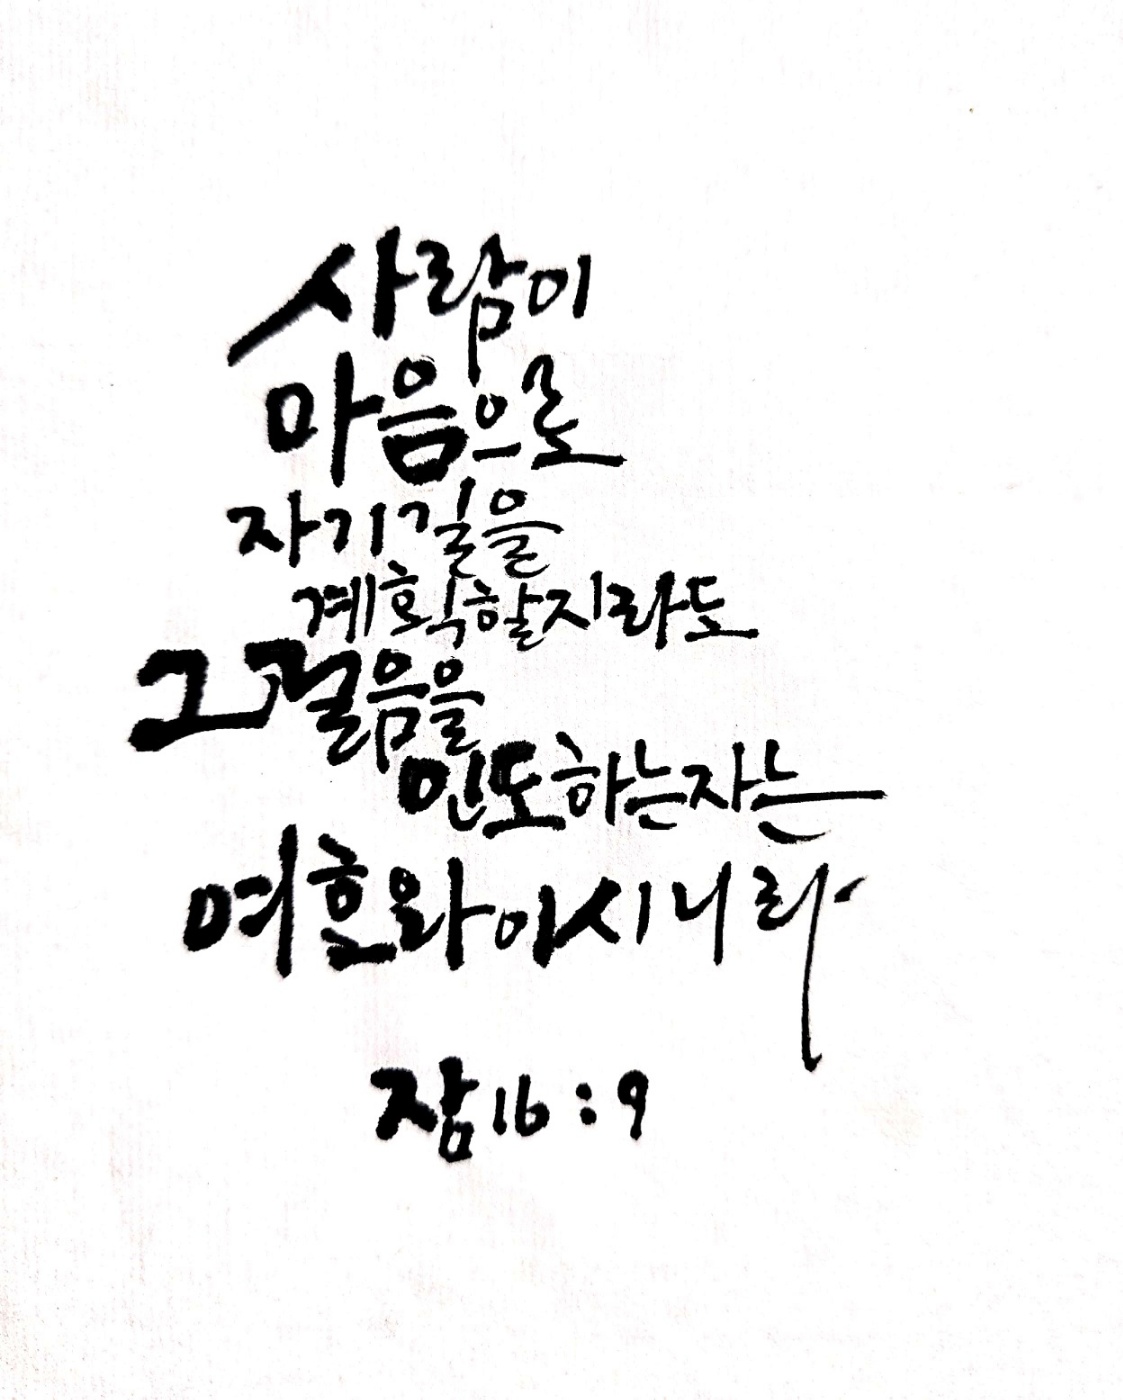 사람이
마음으로
자기길을
계획할지라도
그걸음을
인도하는자는
여호와이시니라
잠16:9